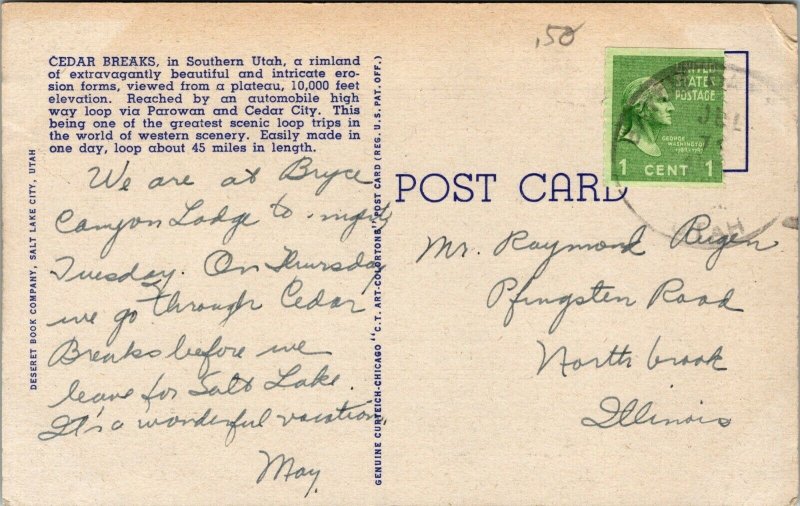 .50
CEDAR BREAKS, in Southern Utah, a rimland
of extravagantly beautiful and intricate ero-
sion forms, viewed from a plateau, 10,000 feet
elevation. Reached by an automobile high
way loop via Parowan and Cedar City. This
being one of the greatest scenic loop trips in
the world of western scenery. Easily made in
one day, loop about 45 miles in length.
We are at Bryce
Canyon Lodge to-night
Tuesday. On Thursday
we go through Cedar
Breaks before we
leave for Salt Lake.
It's a wonderful vacation.
May.
DESERET BOOK COMPANY, SALT LAKE CITY, UTAH
GENUINE CURTEICH-CHICAGO "C.T. ART-COLORTONE" POST CARD (REG. U.S. PAT. OFF.)
POST CARD
UNITED
STATES
POSTAGE
GEORGE
WASHINGTON
1 CENT 1
JUL
UTAH
Mr. Raymond Rugen
Pfingsten Road
Northbrook
Illinois